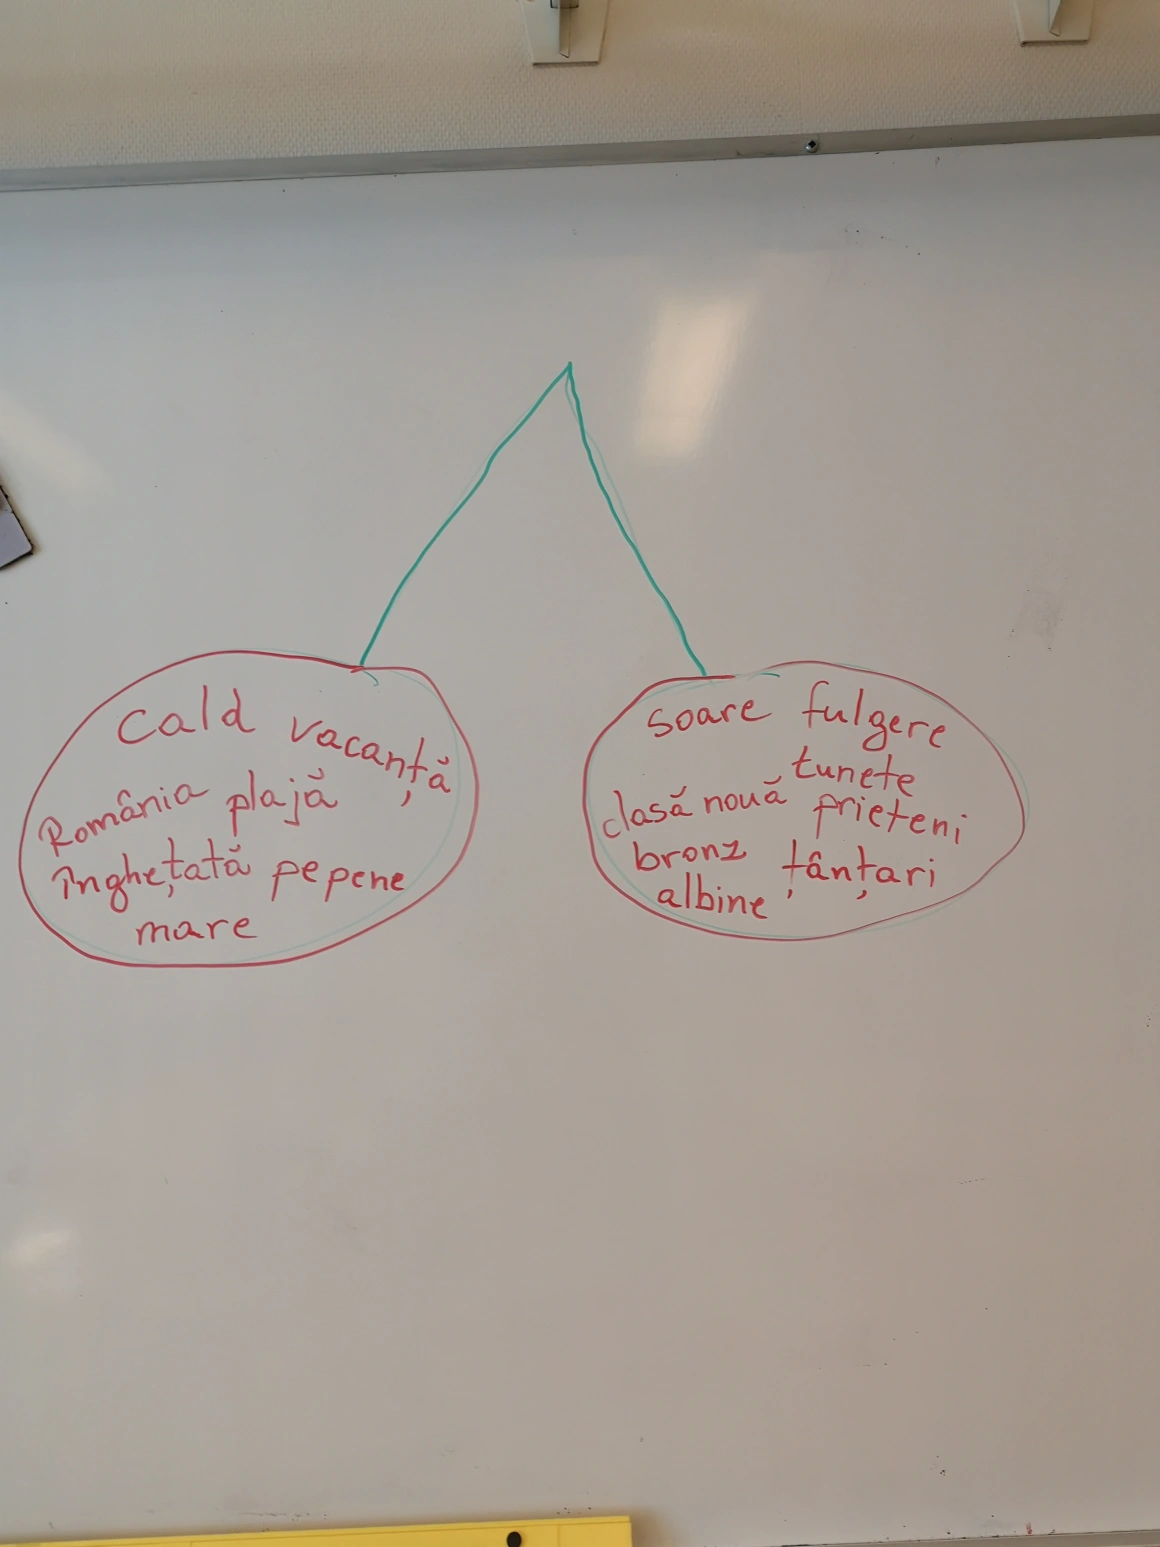 Cald vacanță
România plajă
înghețată pepene
mare
soare fulgere
tunete
clasă nouă prieteni
bronz țânțari
albine